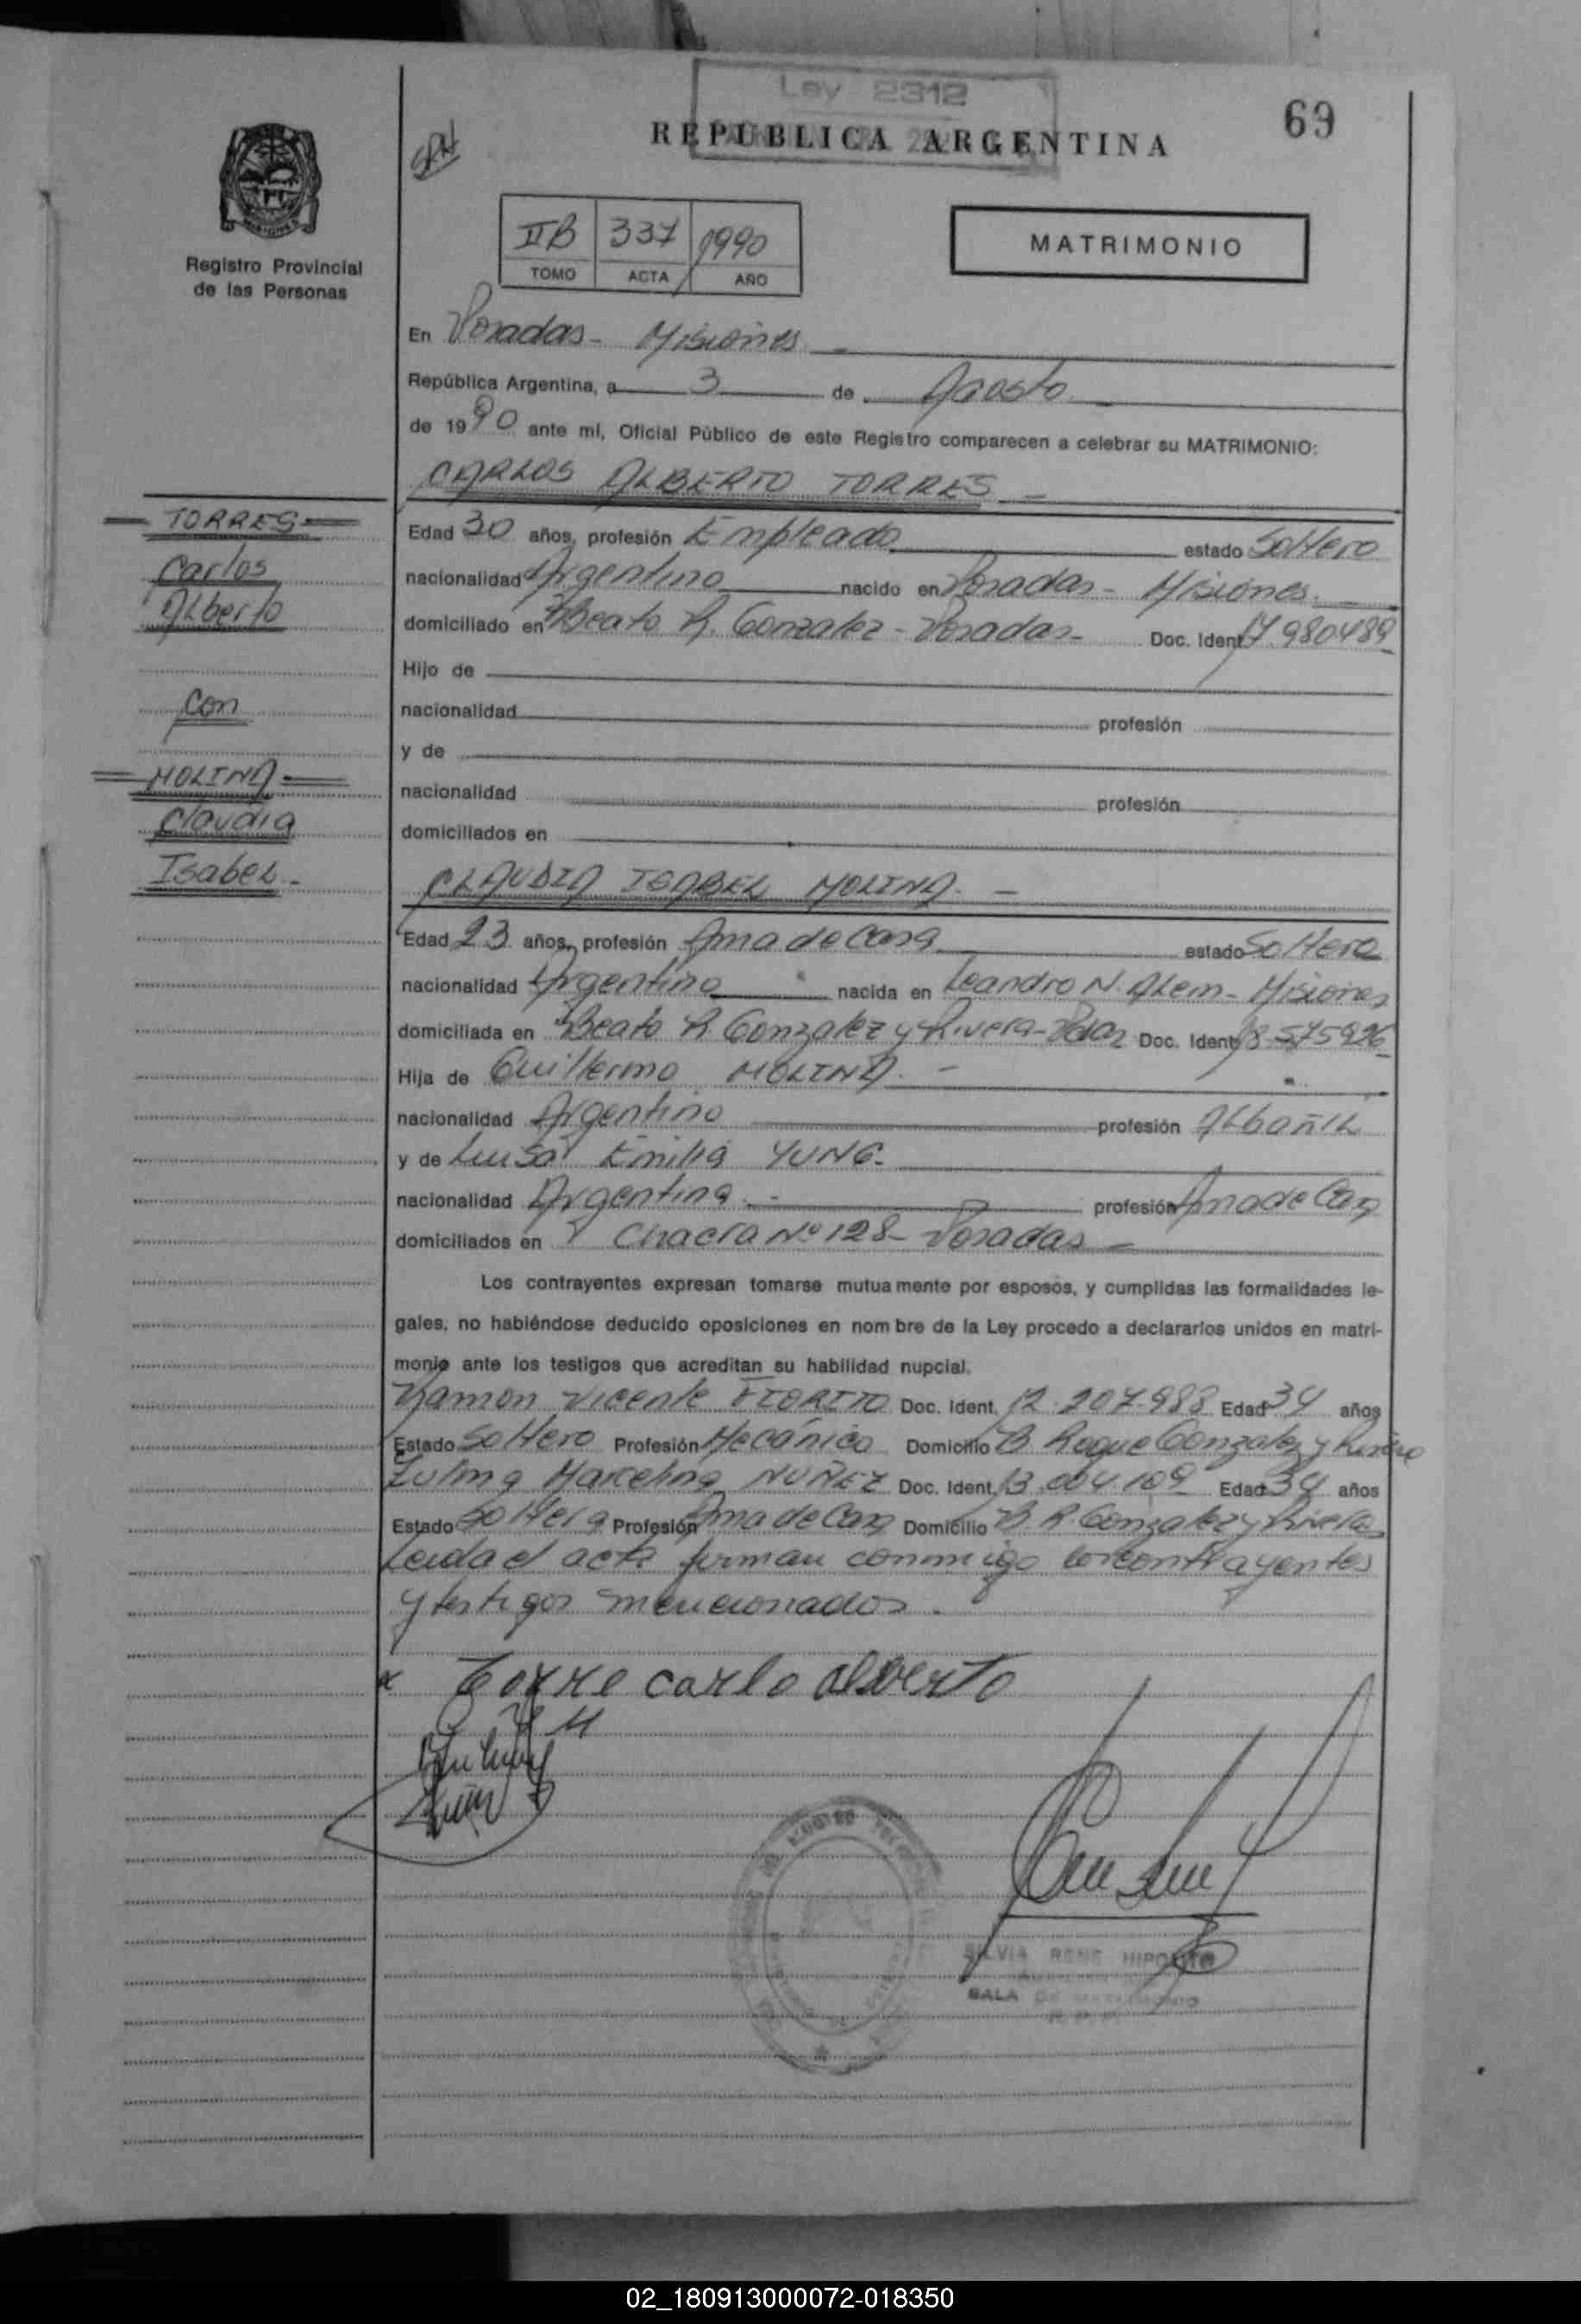 Ley 2312
69
REPUBLICA ARGENTINA
Registro Provincial
de las Personas
IIB 337 1990
TOMO ACTA AÑO
MATRIMONIO
En Posadas - Misiones
República Argentina, a 3 de Agosto
de 1990 ante mí, Oficial Público de este Registro comparecen a celebrar su MATRIMONIO:
CARLOS ALBERTO TORRES -
TORRES
Carlos
Alberto
con
MOLINA
Claudia
Isabel -
Edad 30 años, profesión Empleado estado Soltero
nacionalidad Argentino nacido en Posadas - Misiones.
domiciliado en Beato R. Gonzalez - Posadas - Doc. Ident. 17.980489
Hijo de
nacionalidad profesión
y de
nacionalidad profesión
domiciliados en
CLAUDIA ISABEL MOLINA. -
Edad 23 años, profesión Ama de Casa estado Soltera
nacionalidad Argentina nacida en Leandro N. Alem - Misiones
domiciliada en Beato R Gonzalez y Rivera - Pdas Doc. Ident. 18.575926
Hija de Guillermo MOLINA. -
nacionalidad Argentino profesión Albañil
y de Luisa Emilia YUNG.
nacionalidad Argentina. - profesión Ama de Casa
domiciliados en Chacra Nº 128 - Posadas -
Los contrayentes expresan tomarse mutuamente por esposos, y cumplidas las formalidades le-
gales, no habiéndose deducido oposiciones en nombre de la Ley procedo a declararlos unidos en matri-
monio ante los testigos que acreditan su habilidad nupcial.
Ramon Vicente FIORITO Doc. Ident. 12.207.988 Edad 34 años
Estado Soltero Profesión Mecánico Domicilio B. Roque Gonzalez y Rivera
Zulma Marcelina NUÑEZ Doc. Ident. 13.004.109 Edad 34 años
Estado Soltera Profesión Ama de Casa Domicilio B. R Gonzalez y Rivera
Leida el acta firman conmigo los contrayentes
y testigos mencionados.
x Torre carlo alberto
SILVIA RENE HIPOLITO
SALA DE MATRIMONIO
02_180913000072-018350